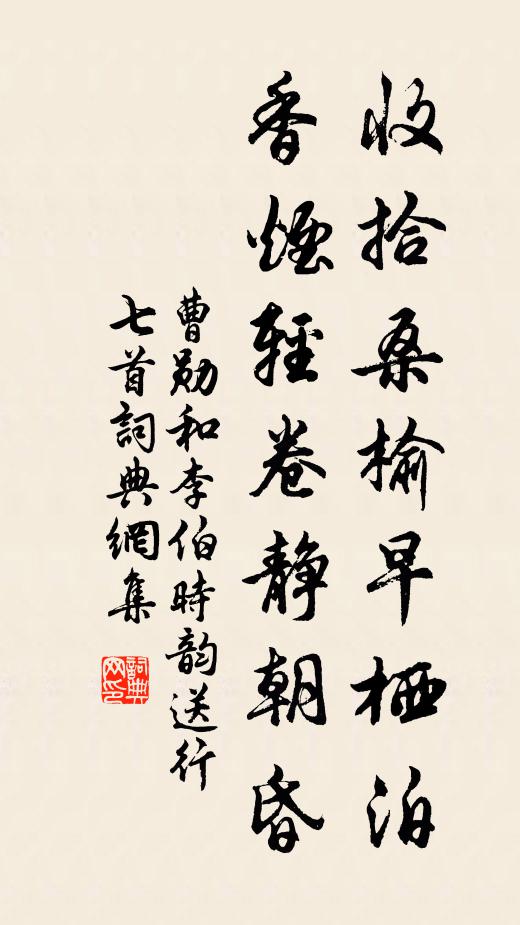 收拾桑榆早栖泊
香煙輕卷静朝昏
曹勋和李伯時韵送行
七首詞典網集
詞典网印